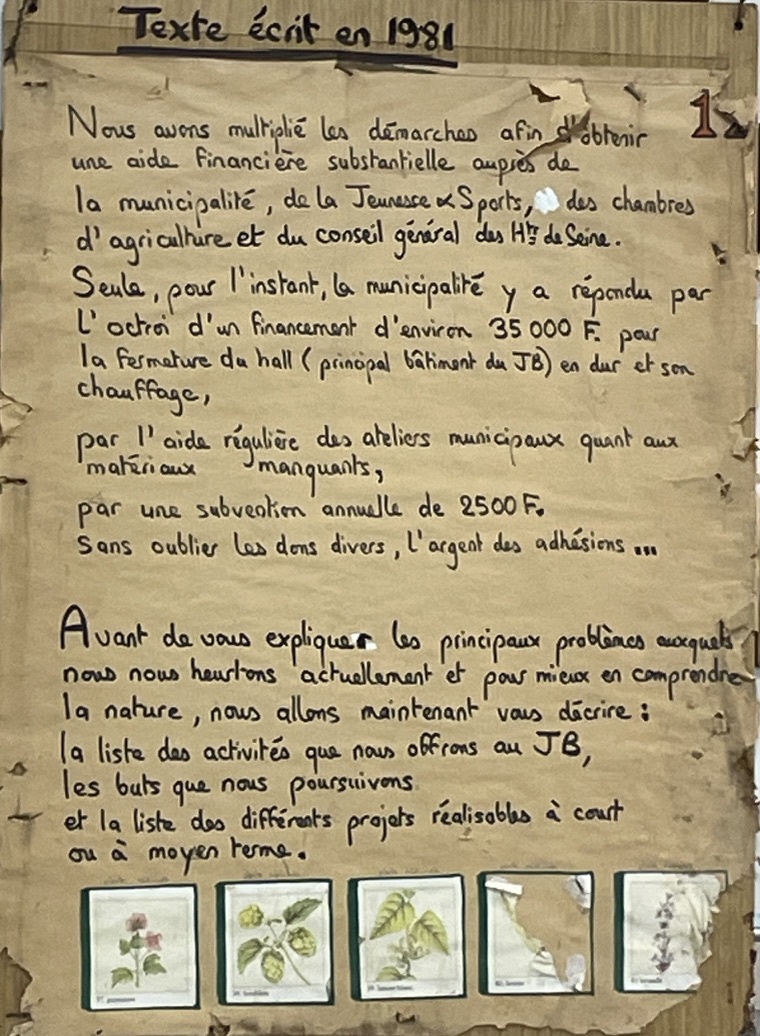 Texte écrit en 1981
1
Nous avons multiplié les démarches afin d'obtenir
une aide financière substantielle auprès de
la municipalité, de la Jeunesse & Sports, des chambres
d'agriculture et du conseil général des Hts de Seine.
Seule, pour l'instant, la municipalité y a répondu par
l'octroi d'un financement d'environ 35 000 F. pour
la fermeture du hall ( principal bâtiment du JB) en dur et son
chauffage,
par l'aide régulière des ateliers municipaux quant aux
matériaux manquants,
par une subvention annuelle de 2500 F.
Sans oublier les dons divers, l'argent des adhésions ...
Avant de vous expliquer les principaux problèmes auxquels
nous nous heurtons actuellement et pour mieux en comprendre
la nature, nous allons maintenant vous décrire :
la liste des activités que nous offrons au JB,
les buts que nous poursuivons
et la liste des différents projets réalisables à court
ou à moyen terme.